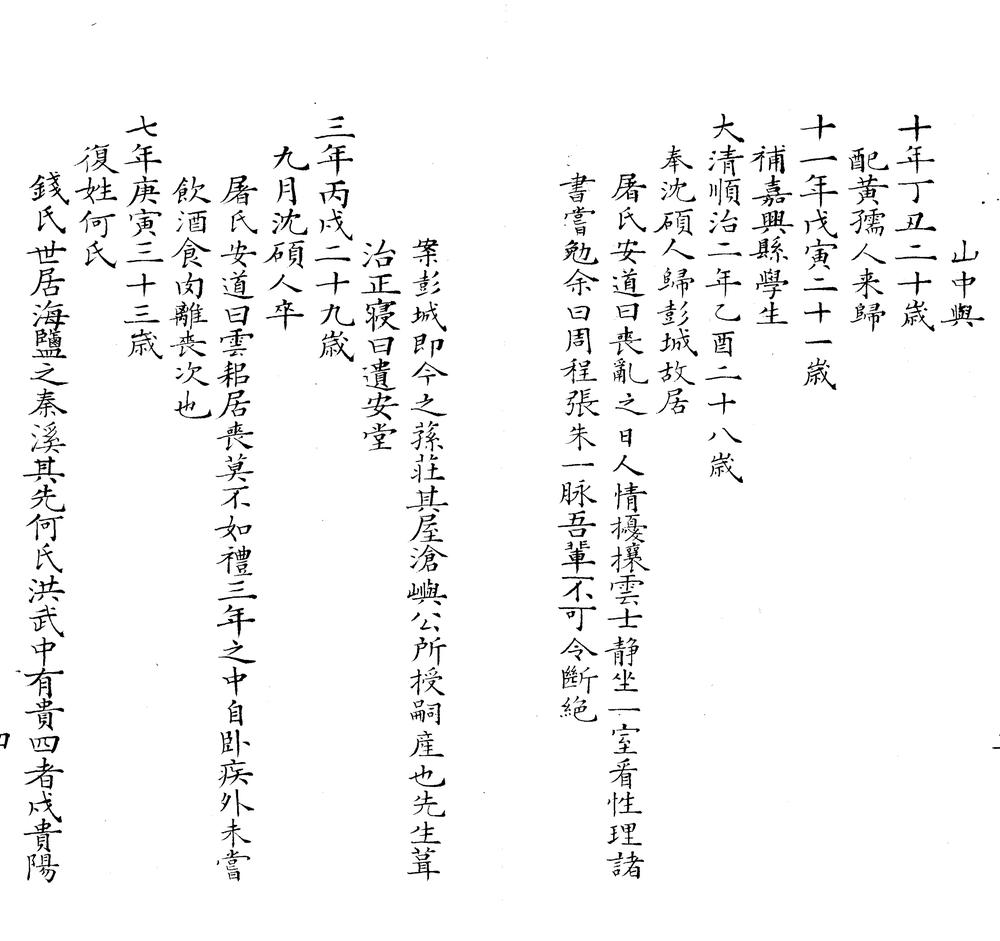 山中與
十年丁丑二十歳
配黃孺人来歸
十一年戊寅二十一歳
補嘉興縣學生
大清順治二年乙酉二十八歳
奉沈碩人歸彭城故居
屠氏安道曰喪亂之日人情擾攘雲士静坐一室看性理諸
書嘗勉余曰周程張朱一脉吾輩不可令斷絶
案彭城即今之蓀莊其屋滄嶼公所授嗣産也先生葺
治正寝曰遺安堂
三年丙戌二十九歳
九月沈碩人卒
屠氏安道曰雲耜居喪莫不如禮三年之中自卧疾外未嘗
飲酒食肉離喪次也
七年庚寅三十三歳
復姓何氏
錢氏世居海鹽之秦溪其先何氏洪武中有貴四者戍貴陽